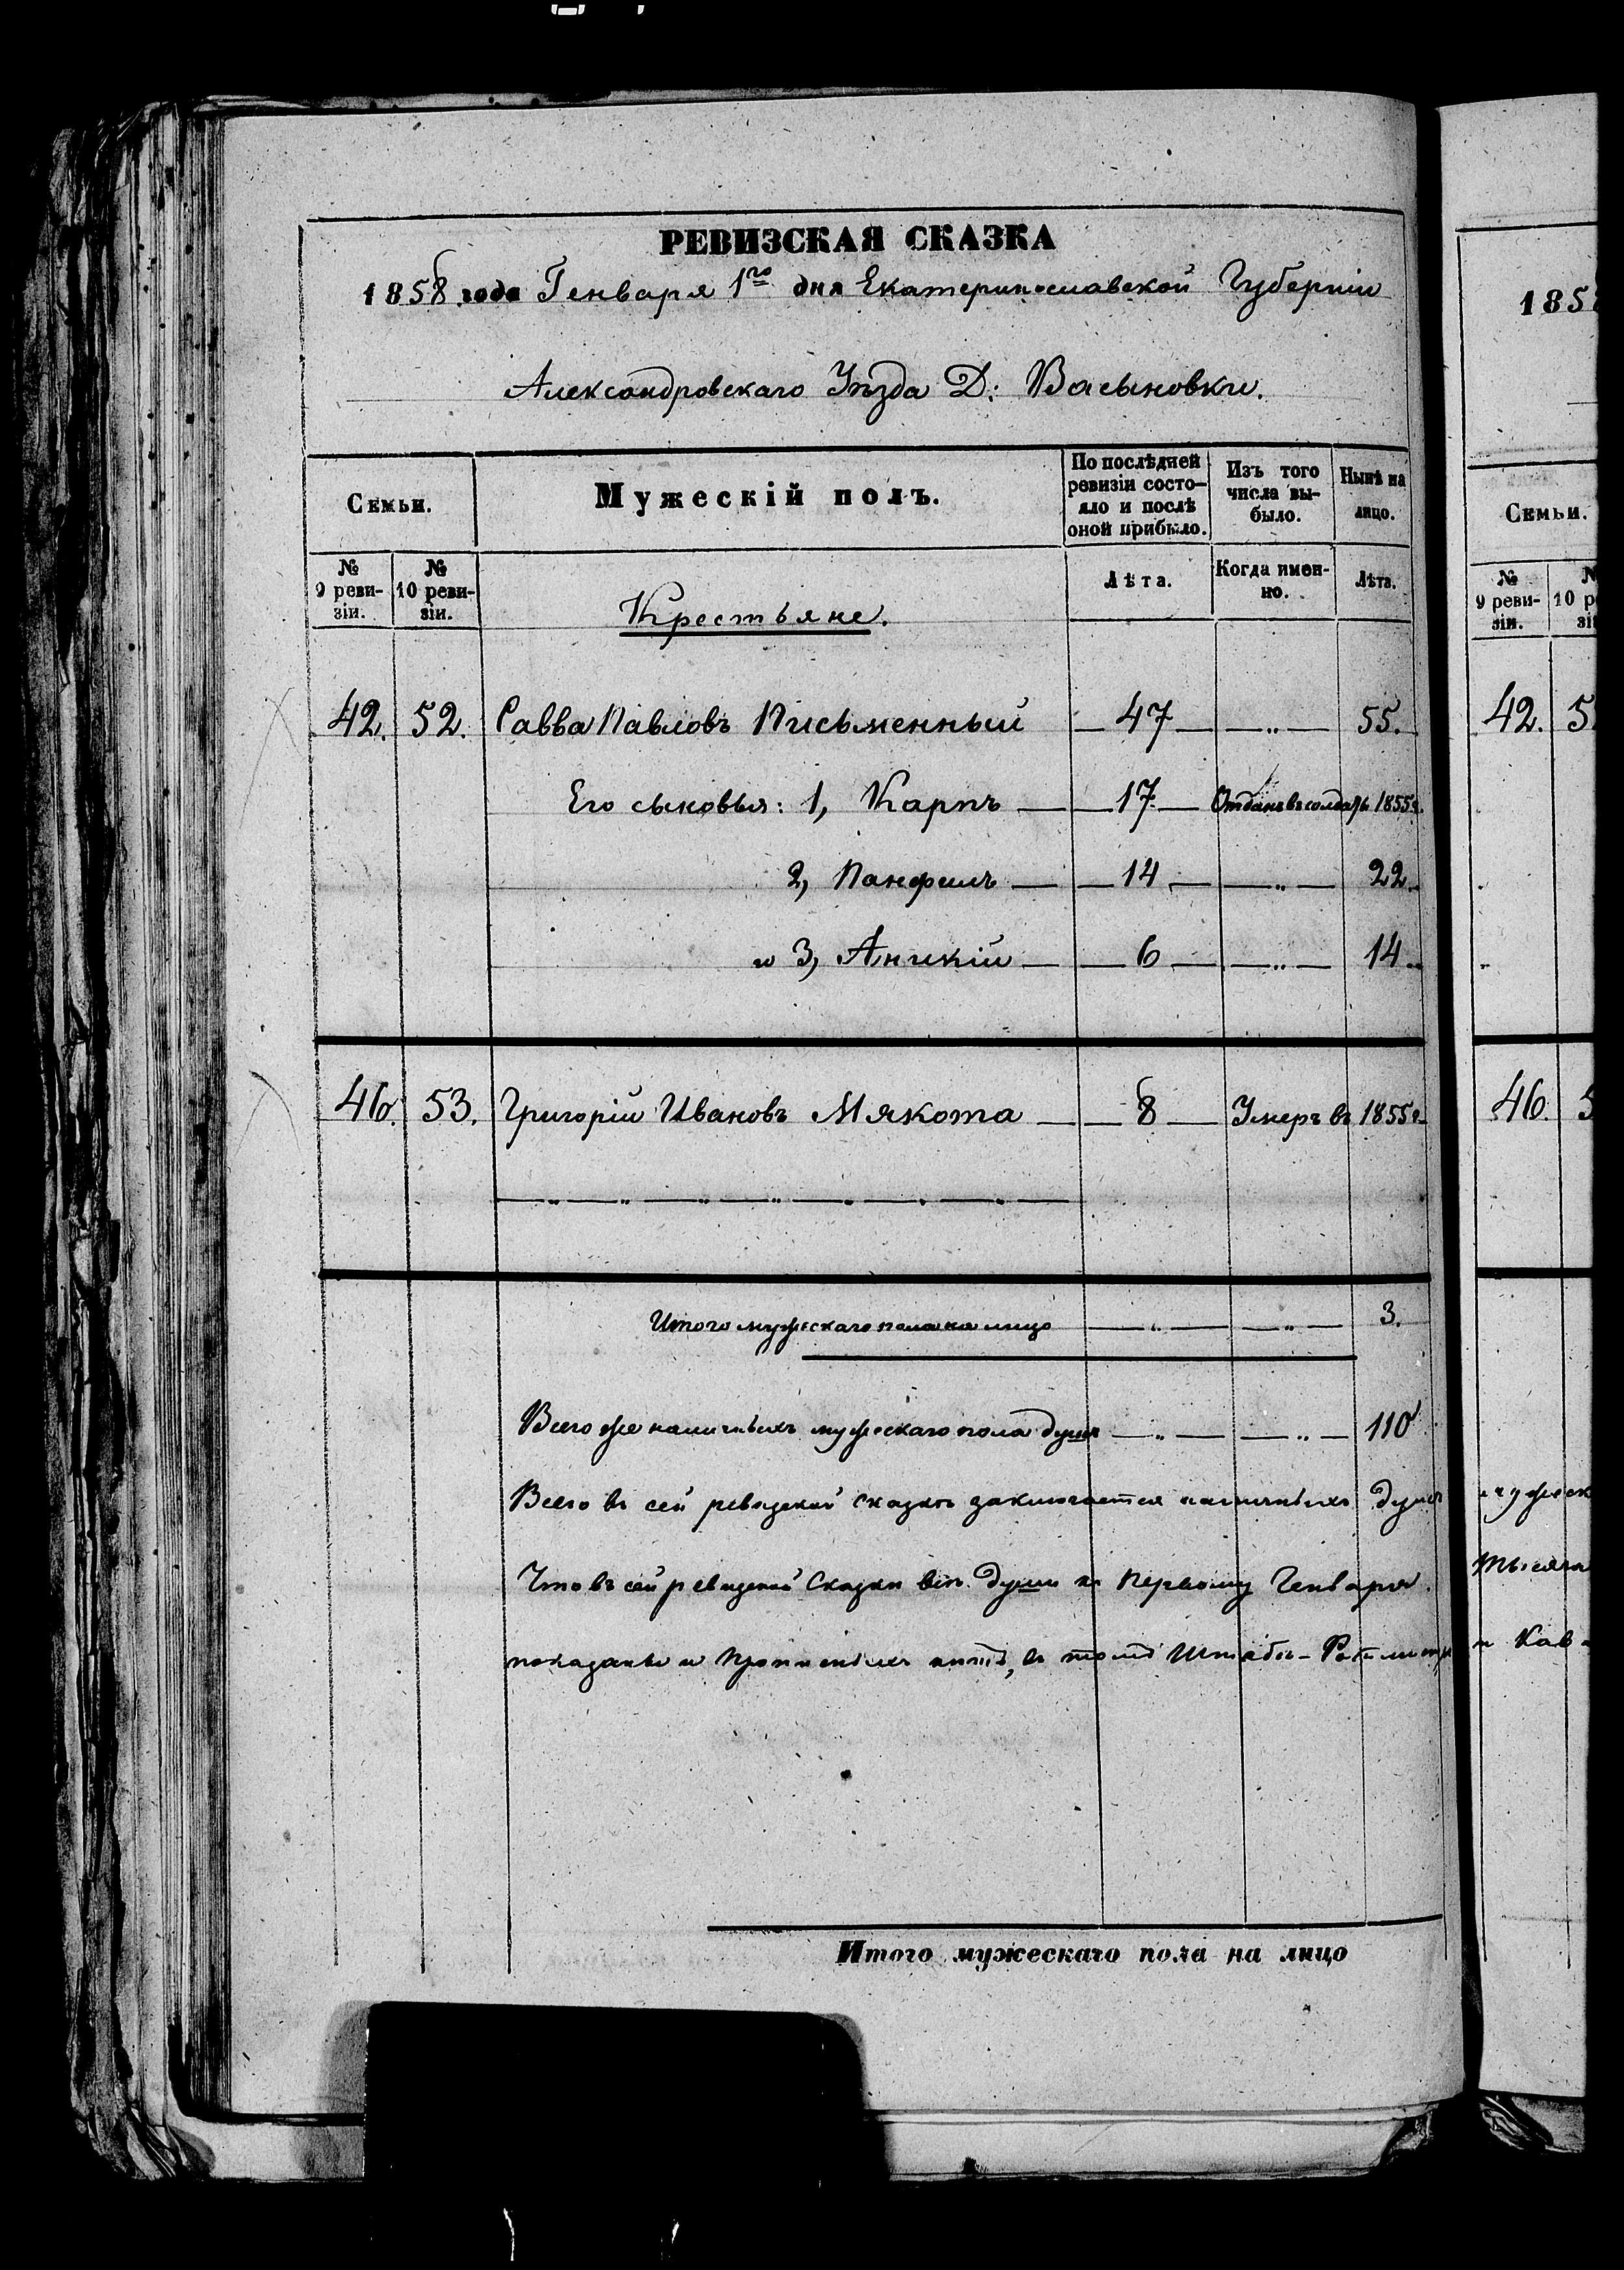 РЕВИЗСКАЯ СКАЗКА
1858 года Генваря 1го дня Екатеринославской Губерніи
Александровскаго Уѣзда Д: Васыновки.
Семьи.
Мужескій полъ.
По послѣдней ревизіи состо-
яло и послѣ оной прибыло.
Изъ того числа вы-
было.
Нынѣ на лицо.
№ 9 реви-
зіи.
№ 10 реви-
зіи.
Крестьяне.
Лѣта.
Когда имен-
но.
Лѣта.
42. 52. Савва Павловъ Письменный — 47 — — „ — 55.
Его сыновья: 1, Карпъ — 17 — Отданъ въ солдаты 1855г.
2, Панфилъ — 14 — — „ — 22
и 3, Аникій — 6 — — „ — 14
46. 53. Григорій Ивановъ Мякота — 8 — Умеръ въ 1855г.
Итого мужескаго пола на лицо — „ — — „ — 3.
Всего же наличныхъ мужескаго пола душъ — „ — — „ — 110
Всего въ сей ревизской сказкѣ заключается наличныхъ душъ
Что въ сей ревизской Сказки всѣ души къ Первому Генваря
показаны и прописныхъ нѣтъ, въ томъ Штабъ-Ротмистръ
Итого мужескаго пола на лицо
185
Семьи.
№ 9 реви-
зіи.
42.
46.